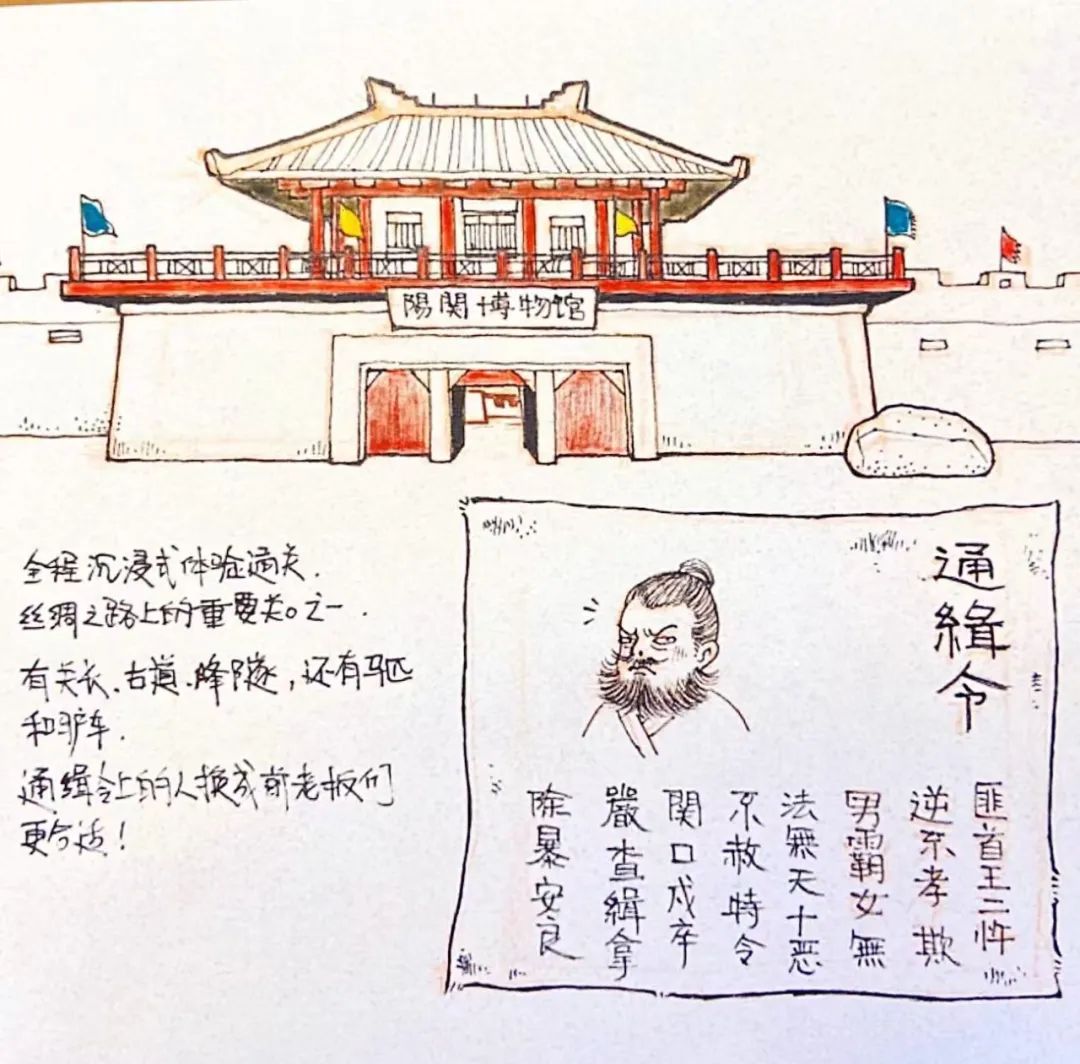 陽関博物馆
全程沉浸式体验通关.
丝绸之路上的重要关口之一.
有关长、古道、烽隧，还有马匹
和驴车.
通缉令上的人换成前老板们
更合适！
通緝令
匪首王二忤
逆不孝欺
男霸女無
法無天十恶
不赦特令
関口戍卒
嚴查緝拿
除暴安良